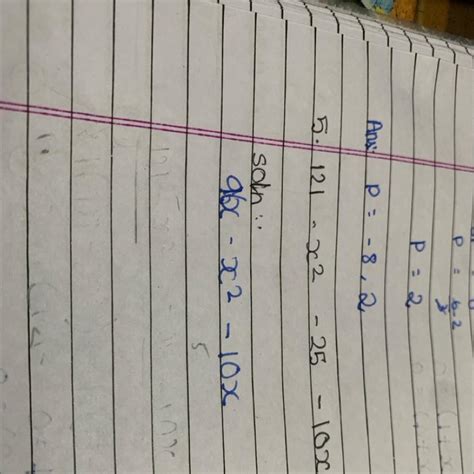 P = 6-2
P = 2
Ans: P = -8, 2
5. 121 - x² - 25 - 10x
soln:
96x - x² - 10x